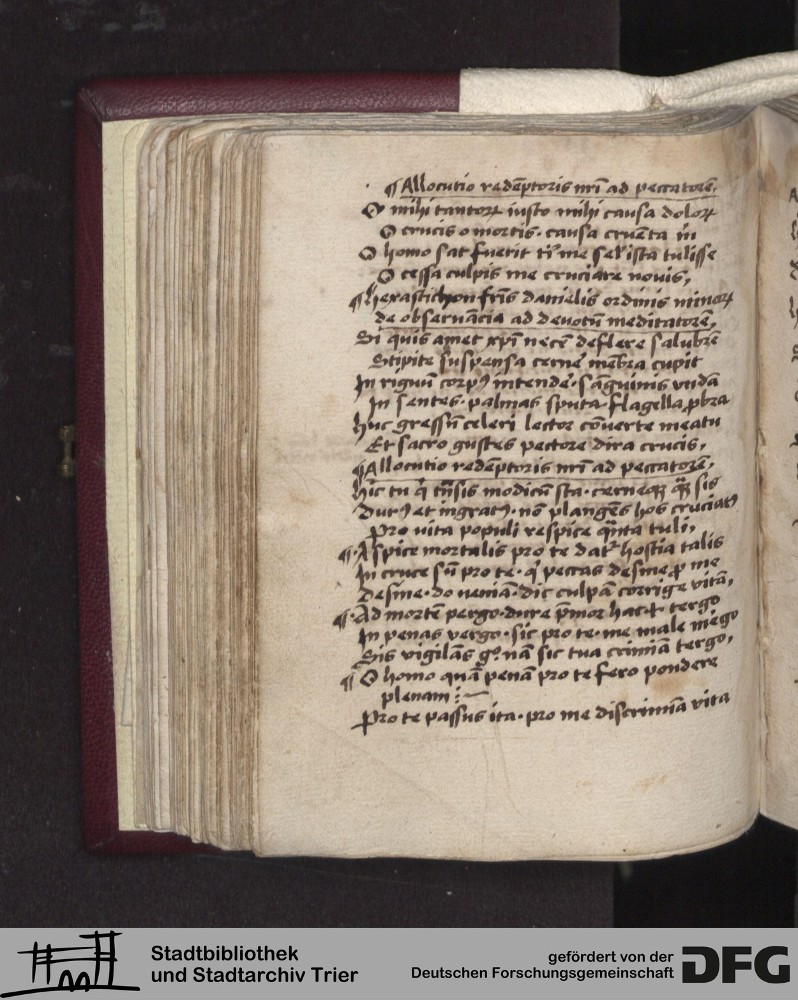 ¶ Allocutio redēptoris nr̄i ad peccatorē.
O mihi tantoꝝ iusto mihi causa doloꝝ
O crucis o mortis · causa cruēta m̄
O homo sat fuerit me ista tulisse
O cessa culpis me cruciare nouis,
¶ hexastichon fr̄is danielis ordinis minoꝝ
de obseruācia ad deuotū meditatorē,
Si quis amet xp̄i necē deflere salubrē
Stipite suspensa cerne mēbra cupit
In riguū corpꝰ intende · sāguinis vnda
In sentes · palmas sputa flagella ꝓbra
huc gressū celeri lector cōuerte meatu
Et sacro gustes pectore dira crucis,
¶ Allocutio redēptoris nr̄i ad peccatorē,
hic tu q̄ trāsis modicū sta · cerneqꝫ sis
Durꝰ et ingratꝰ · nō plangēs hos cruciatꝰ
Pro vita populi respice q̄nta tuli,
¶ · Aspice mortalis pro te datꝰ hostia talis
In cruce sū pro te · qͥ peccas desine ꝓ me
Desine · do veniā · dic culpā corrige vitā,
¶ · Ad mortē pergo · dure p̄mor hac tergo
In penas vergo · sic pro te · me male mēgo
Sis vigilās gͦ · nā sic tua crimīa tergo,
¶ O homo quā penā pro te fero pondere
plenam :~
Pro te passus ita · pro me discrimīa vita
Stadtbibliothek
und Stadtarchiv Trier
gefördert von der
Deutschen Forschungsgemeinschaft
DFG